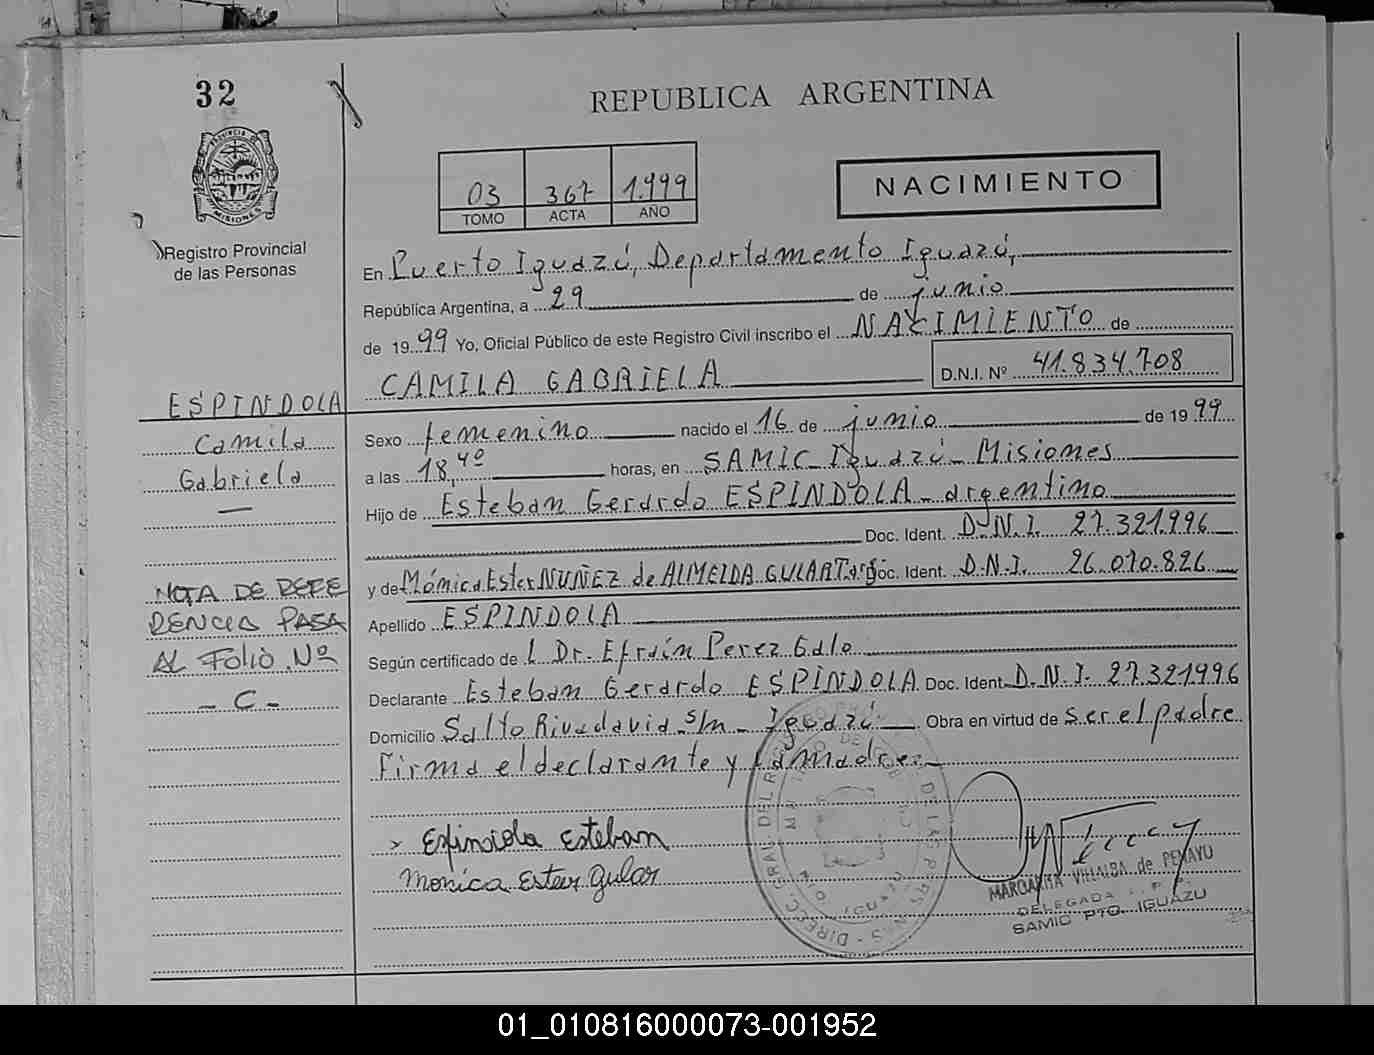 32
REPUBLICA ARGENTINA
PROVINCIA DE
MISIONES
Registro Provincial
de las Personas
03 367 1.999
TOMO ACTA AÑO
NACIMIENTO
En Puerto Iguazú, Departamento Iguazú,
República Argentina, a 29 de junio
de 1999 Yo, Oficial Público de este Registro Civil inscribo el NACIMIENTO de
CAMILA GABRIELA D.N.I. Nº 41.834.708
ESPINDOLA
Camila
Gabriela
—
Sexo femenino nacido el 16 de junio de 1999
a las 18,40 horas, en SAMIC - Iguazú - Misiones
Hijo de Esteban Gerardo ESPINDOLA - argentino
Doc. Ident. D.N.I. 27.321.996
y de Mónica Ester NUÑEZ de ALMEIDA GULART - arg Doc. Ident. D.N.I. 26.010.826
Apellido ESPINDOLA
Según certificado de l Dr. Efraín Perez Galo
Declarante Esteban Gerardo ESPINDOLA Doc. Ident. D.N.I. 27.321996
Domicilio Salto Rivadavia s/n - Iguazú Obra en virtud de ser el padre
Firma el declarante y la madre
NOTA DE REFE
RENCIA PASA
AL FOLIO Nº
- C -
Espindola Esteban
Monica Ester gular
MARGARITA VILLALBA de PENAYU
DELEGADA
SAMIC PTO. IGUAZU
01_010816000073-001952